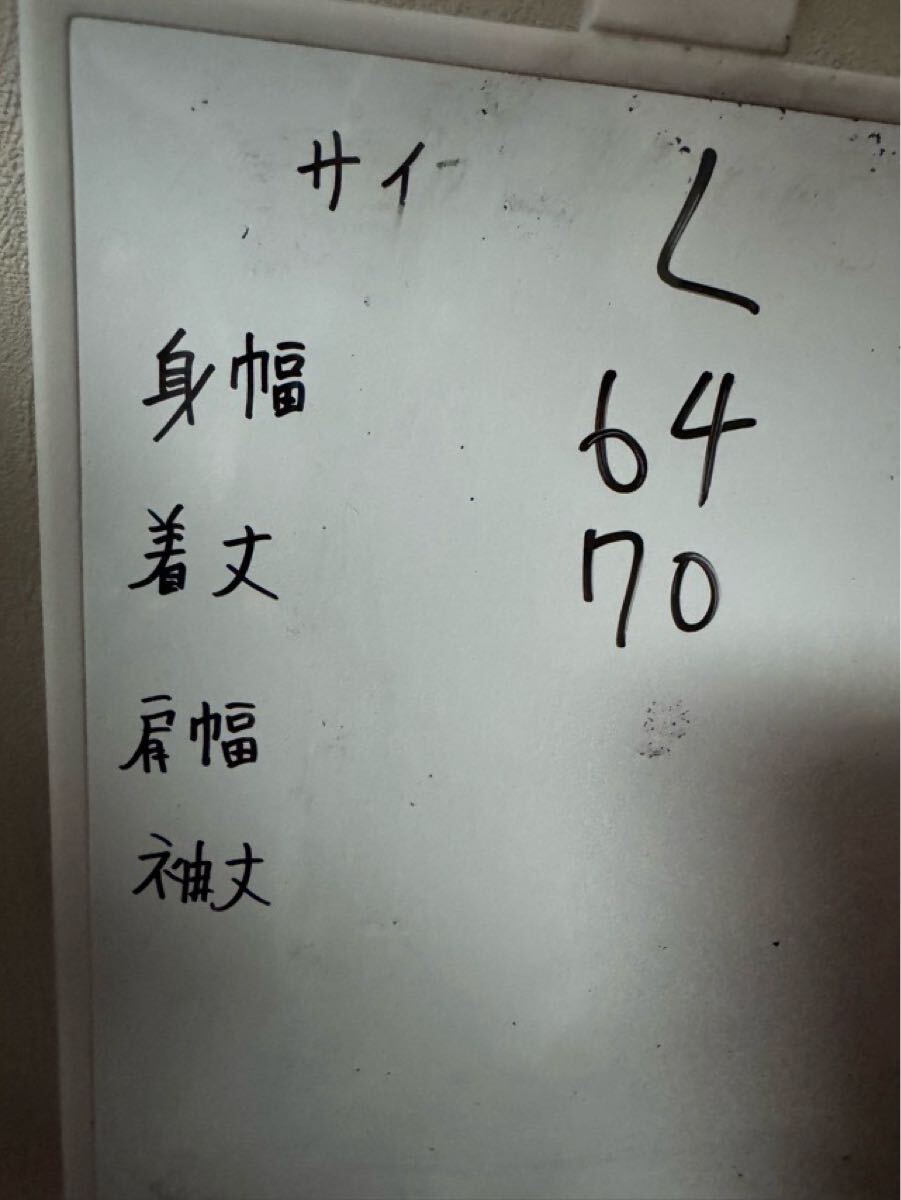 サイ L
身幅 64
着丈 70
肩幅
袖丈